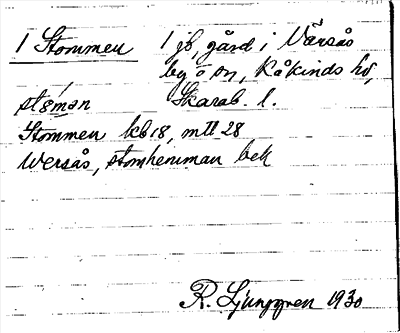 1 Stommen 1 jb, gård i Värsås
by o sn, Kåkinds hd,
Skarab. l.
stɷ́man
Stommen kb 18, mtl 28
Wersås, stomhemman bek
R. Ljunggren 1930